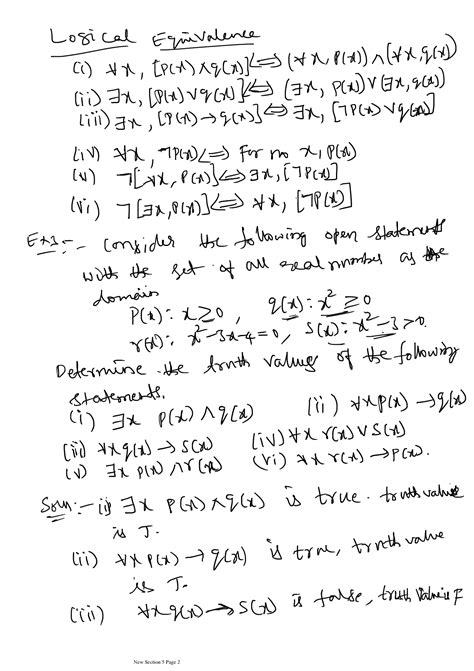 Logical Equivalence
(i) ∀x, [p(x) ∧ q(x)] ⟺ (∀x, p(x)) ∧ (∀x, q(x))
(ii) ∃x, [p(x) ∨ q(x)] ⟺ (∃x, p(x)) ∨ (∃x, q(x))
(iii) ∃x, [p(x) → q(x)] ⟺ ∃x, [¬p(x) ∨ q(x)]
(iv) ∀x, ¬p(x) ⟺ For no x, p(x)
(v) ¬[∀x, p(x)] ⟺ ∃x, [¬p(x)]
(vi) ¬[∃x, p(x)] ⟺ ∀x, [¬p(x)]
Ex1:- Consider the following open statements
with the set of all real number as the
domain
p(x): x ≥ 0, q(x): x² ≥ 0
r(x): x² - 3x - 4 = 0, s(x): x² - 3 > 0.
Determine the truth values of the following
statements.
(i) ∃x p(x) ∧ q(x) (ii) ∀x p(x) → q(x)
(iii) ∀x q(x) → s(x) (iv) ∀x r(x) ∨ s(x)
(v) ∃x p(x) ∧ r(x) (vi) ∀x r(x) → p(x).
Soln:- (i) ∃x p(x) ∧ q(x) is true. truth value
is T.
(ii) ∀x p(x) → q(x) is true, truth value
is T.
(iii) ∀x q(x) → s(x) is false, truth value is F
New Section 5 Page 2